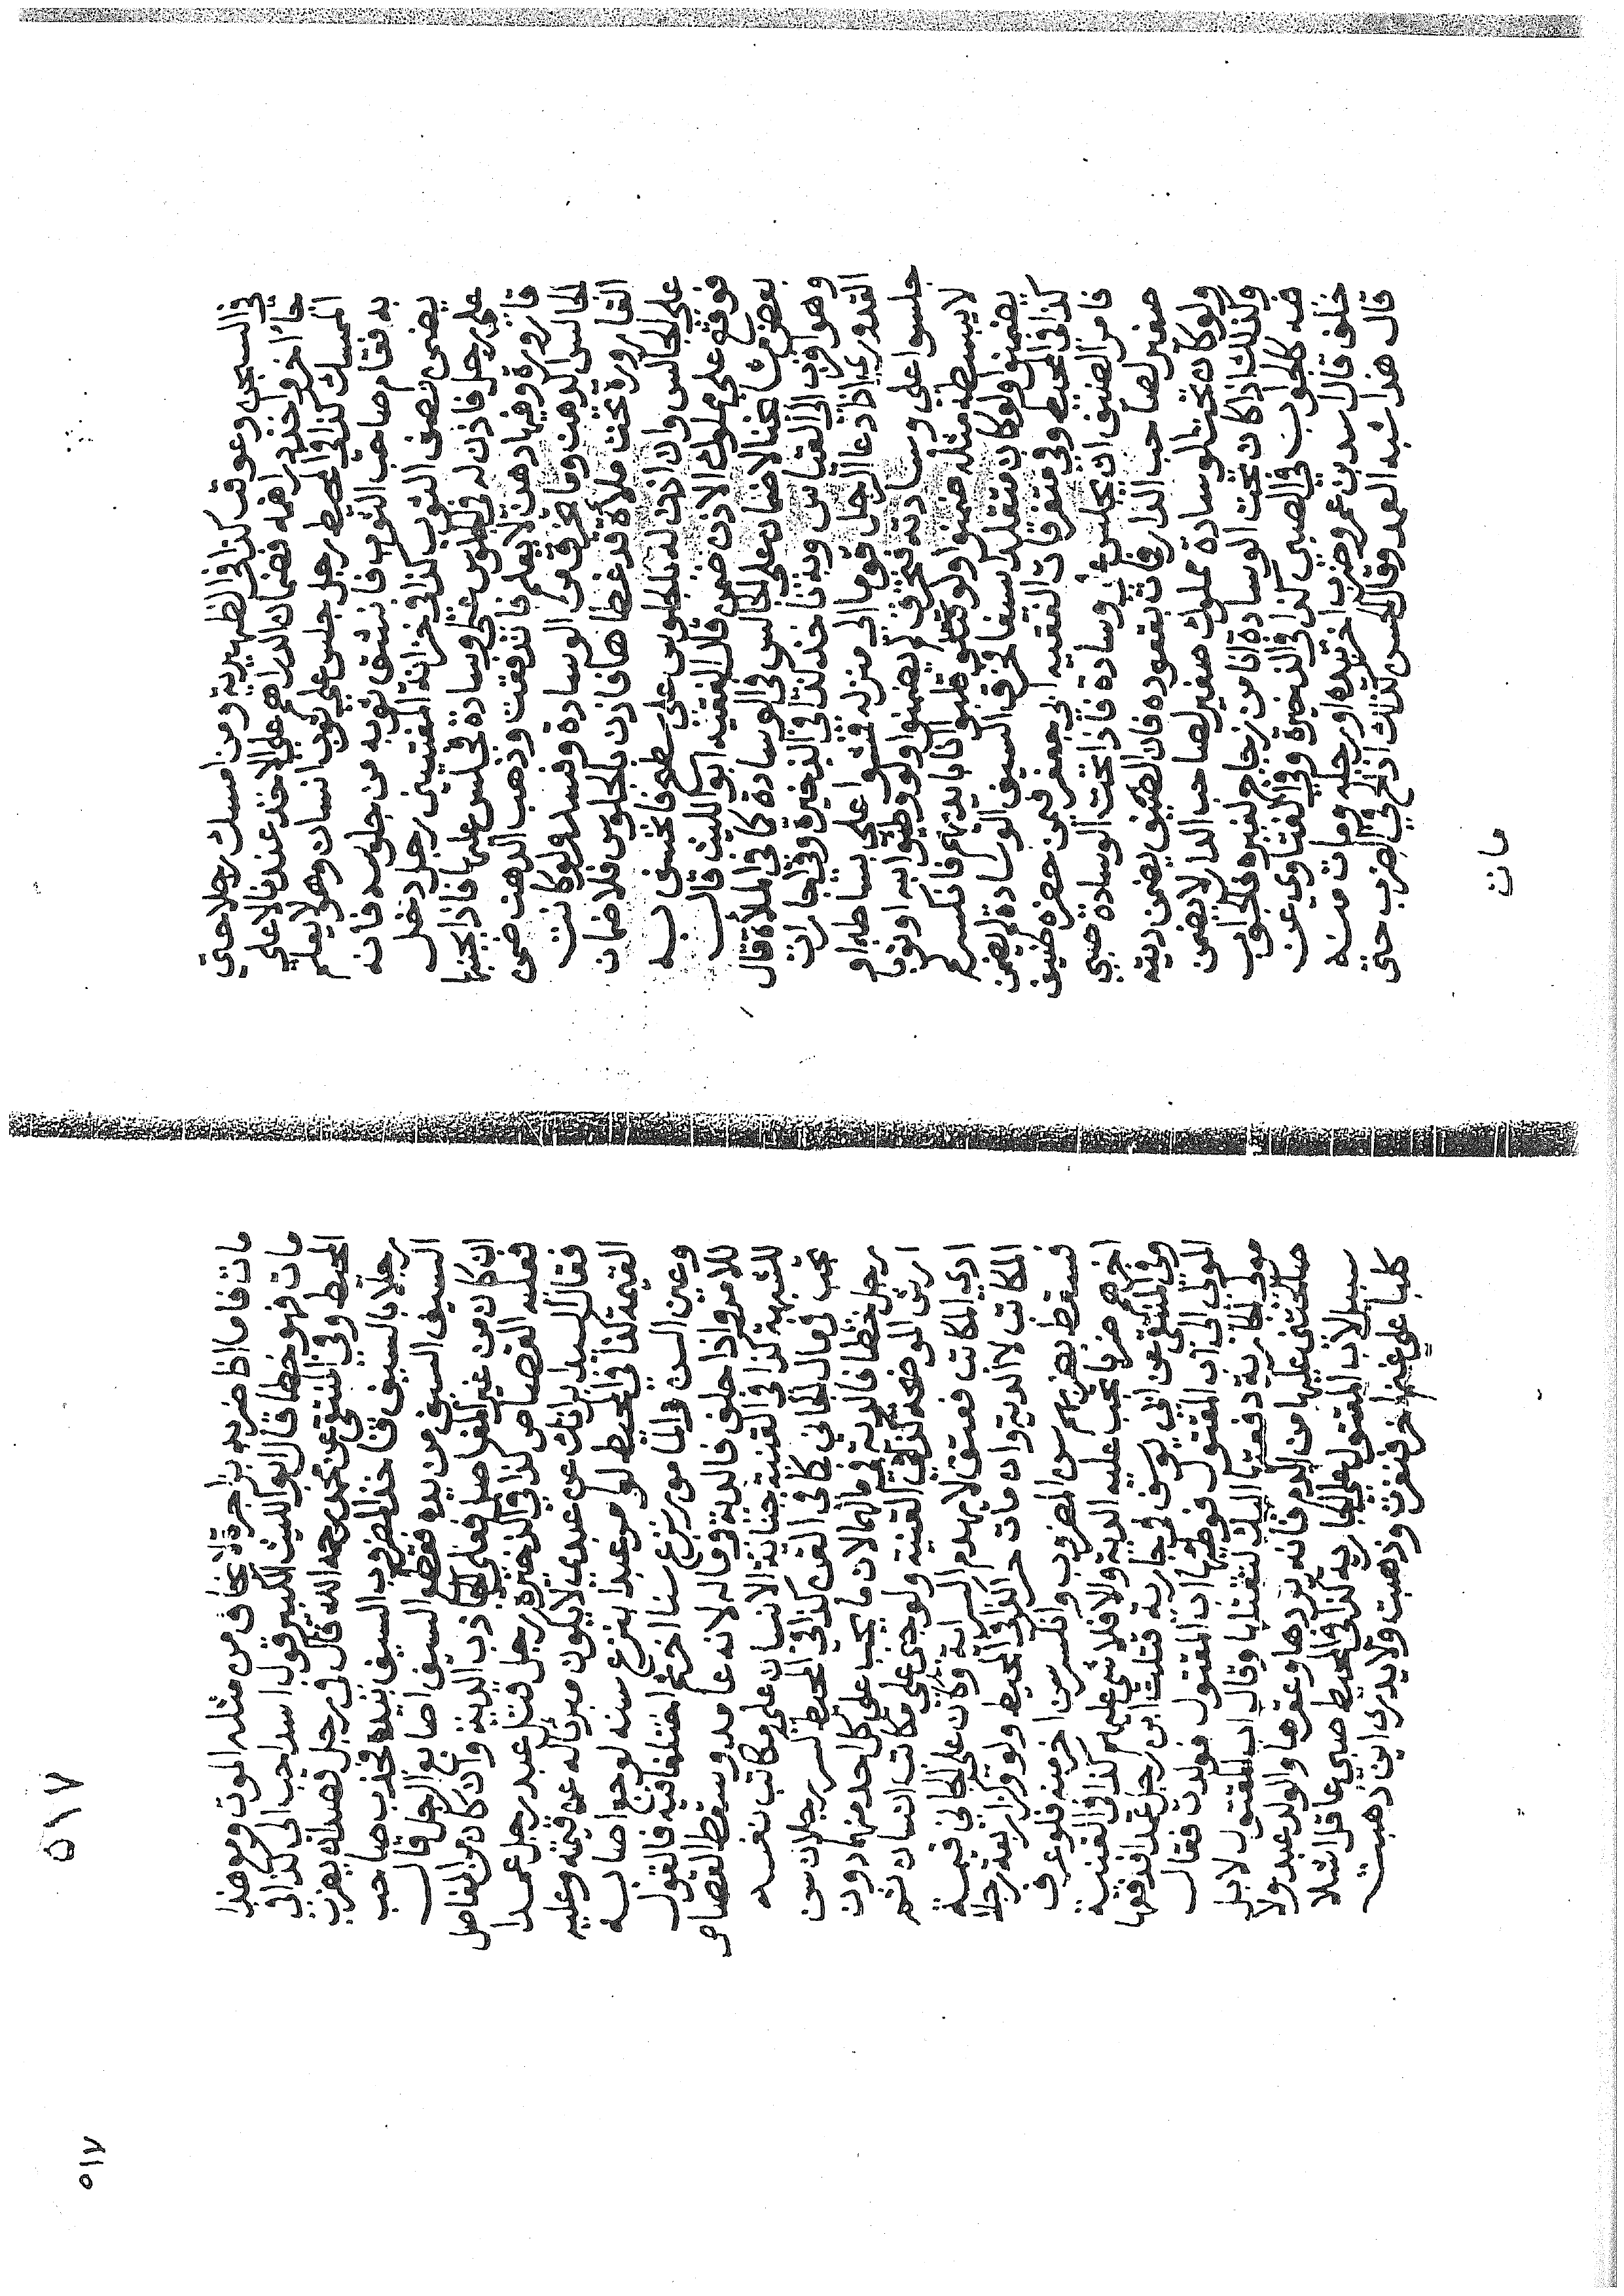 في السجن وعوقب كذا في الظهيرية ومن امسك رجلا حتي
جاء اخر واخذ دراهمه فضمان الدراهم علي الاخذ عندنا لا علي
الممسك كذا في المحيط رجل جلس علي ثوب انسان وهو لا يعلم
به فقام صاحب الثوب فانشق ثوبه من جلوسه فانه
يضمن نصف الثوب كذا في خزانة المفتيين رجل دخل
علي رجل فاذن له في الجلوس علي وسادة فجلس عليها فاذا تحتها
قارورة وفيها دهن لا يعلم فاندفقت وذهب الدهن ضمن
الجالس الدهن وما تخرق من الوسادة وفسد ولو كانت
القارورة تحت ملاءة قد غطاها فاذن بالجلوس فلا ضمان
علي الجالس وان اذن له بالجلوس علي سطح فانخسف به
فوقع علي مملوك الاذن ضمن قال الفقيه ابو الليث قال
بعض مشايخنا لا ضمان علي الجالس في الوسادة كما في الملاءة قال
وهو اقرب الي القياس وبه ناخذ كذا في الذخيرة وفي اجارات
القدوري اذا دعا الرجل قوما الي منزله فمشوا علي بساطه او
جلسوا علي وسادته فتخرقت لم يضمنوا ولو وطئوا او ثوبا
لا يبسط مثله ضمنوا ولو قلبوا انا بايديهم فانكسر لم
يضمنوا ولو كان متقلدا سيفا فخرق السيف الوسادة لم يضمن
كذا في المحيط وفي متفرقات الفقيه ابي جعفر فيمن حضره ضيف
فامر الضيف ان يجلس علي وسادة فاذا تحت الوسادة صبي
صغير لصاحب الدار فمات بقعوده فان الضيف يضمن ديته
ولو كان تحت الوسادة مملوك صغير لصاحب الدار لا يضمن
وكذلك اذا كان تحت الوسادة انا من زجاج لغيره فالجواب
فيه كالجواب في الصبي كذا في الذخيرة وفي الفتاوي عن
خلف قال اسد بن عمرو ضرب اخر بيده او رجله ومات منه
قال هذا شبه العمد وقال الحسن كذلك اذا لح في الضرب حتي
مات
٥١٧
مات فاما اذا ضربه بآجرة لا يخاف من مثله الموت ومع هذا
مات فهو خطا قال ابو الليث الكبير قول اسد احب الي كذا في
المحيط وفي المنتقي عن محمد رحمه الله قال في رجل قصد ان يضرب
رجلا بالسيف فاخذ المضروب السيف بيده فجذب صاحب
السيف السيف من يده فقطع السيف اصابع الرجل قال
ان كان من غير المفاصل فعلي الجاذب الدية وان كان من المفاصل
فعليه القصاص كذا في الذخيرة رجل قتل عبد رجل عمدا
فقال السيد ابراتك عن عبدي لا يكون مبرئا له عن قيمته وعليه
القيمة كذا في المحيط لو امر عبدا بنزع سنه لوجع اصابه
وعين السن والمامور نزع سنا اخر ثم اختلفا فيه فالقول
للامر واذا حلف فالدية في ماله لانه عامد وسقط القصاص
للشبهة كذا في القنية جناية الانسان علي مكاتب نفسه
تجب في مال الجاني كما في القن كذا في المحيط كسر رجلان سن
رجل خطا فالدية في مالهما لان ما يجب علي كل احد منهما دون
ارش الموضحة كذا في القنية ولو جني علي مكاتب انسان ثم
ادي المكاتب فعتق لا يهدر السراية وكان علي الجاني قيمة
المكاتب لا الدية وان مات حرا كذا في المحيط ولو وكزا ربعة رجلا
فسقط بضربهم سن المضروب وانكسر سن اخر منه فلو عرف
اخرهم ضربا يجب عليه الدية والا فلا شي عليهم كذا في القنية
وفي المنتقي عن ابي يوسف في جارية قتلت ابن رجل عمدا فدفعها
المولي الي اب المقتول فوطئها اب المقتول فولدت فقال
مولي الجارية دفعتها اليك لتقتلها وقال اب المقتول لا بل
صالحتني عليها من الدم فانه يردها وعقرها والولد عبد ولا
سبيل لاب المقتول علي الجارية كذا في المحيط صبي عاقل اشلا
كلبا علي غنم اخر فنفرت وذهبت ولا يدري اين ذهبت
٥١٧